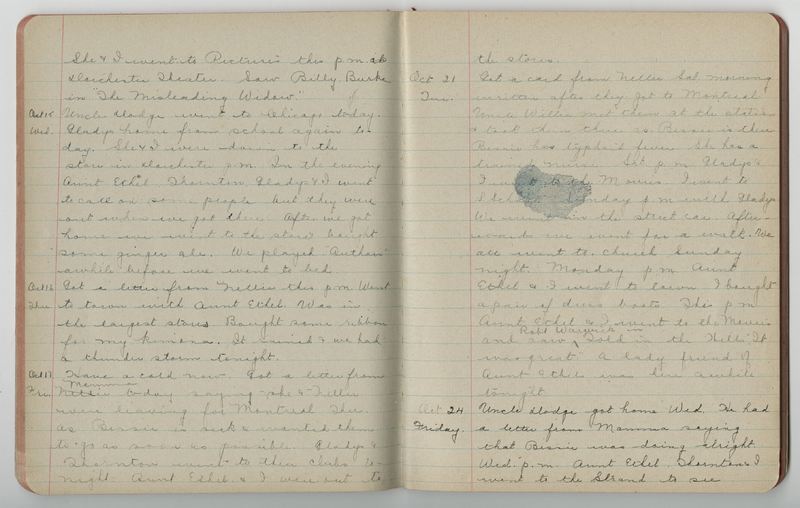 She & I went to Pictures this p.m. at
Dorchester Theater. Saw Billy Burke
in "The Misleading Widow."
Oct 15 Uncle Dodge went to Chicago today.
Wed. Gladys home from school again to-
day. She & I were down to the
store in Dorchester p.m. In the evening
Aunt Ethel, Thornton, Gladys & I went
to call on some people but they were
out when we got there. After we got
home we went to the store bought
some ginger ale. We played "Author"
awhile before we went to bed.
Oct 16 Got a letter from Nellie this p.m. Went
Thu. to town with Aunt Ethel. Was in
the largest stores Bought some ribbon
for my kimona. It rained & we had
a thunder storm tonight.
Oct 17 Have a cold now. Got a letter from
Mamma
Fri. Nellie today saying she & Nellie
were leaving for Montreal Thu.
as Bessie is sick & wanted them
to go as soon as possible. Gladys &
Thornton went to their clubs to-
night. Aunt Ethel & I were out to
the stores.
Oct 21 Got a card from Nellie Sat. morning
Tue. written after they got to Montreal
Uncle Willie met them at the station
& took them there as Bessie is there
Bessie has typhoid fever. She has a
trained nurse. Sat. p.m. Gladys &
I went to the Movies. I went to
S. School Sunday p.m. with Gladys
We went in the street car. After-
wards we went for a walk. We
all went to church Sunday
night. Monday p.m. Aunt
Ethel & I went to town I bought
a pair of dress boots This p.m.
Aunt Ethel & I went to the Movies
Robt Warwick in
and saw "Told in the Hills" It
was great. A lady friend of
Aunt Ethel's was here awhile
tonight.
Oct 24 Uncle Dodge got home Wed. He had
Friday. a letter from Mamma saying
that Bessie was doing alright
Wed. p.m. Aunt Ethel, Thornton & I
went to the Strand to see